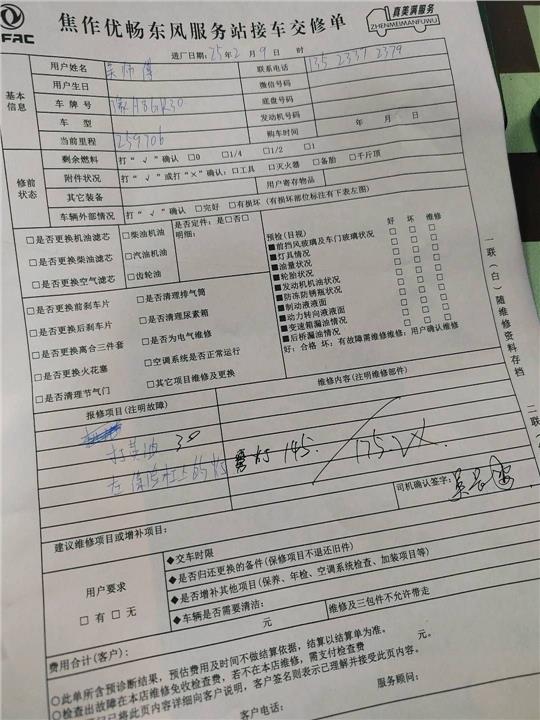 FAC
焦作优畅东风服务站接车交修单
真美满服务
ZHENMEIMANFUWU
进厂日期：25年2月9日 时
基本信息
用户姓名 吴师傅 联系电话 135 2337 2379
用户生日 微信号码
车牌号 底盘号码
车型 发动机号码
当前里程 259706 购车时间 年 月 日
修前状态
剩余燃料 打“√”确认 □0 □1/4 □1/2 □1
附件状况 打“√”或打“×”确认：□工具 □灭火器 □备胎 □千斤顶
其它装备 用户寄存物品
车辆外部情况 打“√”确认 □完好 □有损坏（有损坏部位标注有下表左图）
□是否更换机油滤芯 □柴油机油 是否定件：是□否□
□是否更换柴油滤芯 □汽油机油 明细：
□是否更换空气滤芯 □齿轮油
□是否更换前刹车片 □是否清理排气筒
□是否更换后刹车片 □是否清理尿素箱
□是否更换离合三件套 □是否为电气维修
□是否更换火花塞 □空调系统是否正常运行
□是否清理节气门 □其它项目维修及更换
预检（目视） 好 坏 维修
■前挡风玻璃及车门玻璃状况 □ □ □
■灯具情况 □ □ □
■油量状况 □ □ □
■轮胎状况 □ □ □
■发动机机油状况 □ □ □
■防冻防锈瓶状况 □ □ □
■制动液液面 □ □ □
■动力转向液液面 □ □ □
■变速箱漏油情况 □ □ □
■后桥漏油情况 □ □ □
好：合格 坏：有故障需维修维修：用户确认维修
一联（白）随维修资料存档
二联
报修项目（注明故障） 维修内容（注明维修部件）
打黄油 30
左保险杠上的灯 145. 175
司机确认签字：
建议维修项目或增补项目：
用户要求
□有 □无
◆交车时限
◆是否归还更换的备件（保修项目不退还旧件）
◆是否增补其他项目（保养、年检、空调系统检查、加装项目等）
◆车辆是否需要清洁：
费用合计（客户）： 元 维修及三包件不允许带走
○此单所含预诊断结果，预估费用及时间不做结算依据，结算以结算单为准。
○检查出故障在本店维修免收检查费，若不在本店维修，需支付检查费 元。
已将此页内容详细向客户说明，客户签名则表示已理解并接受此页内容。
客户电话： 服务顾问：